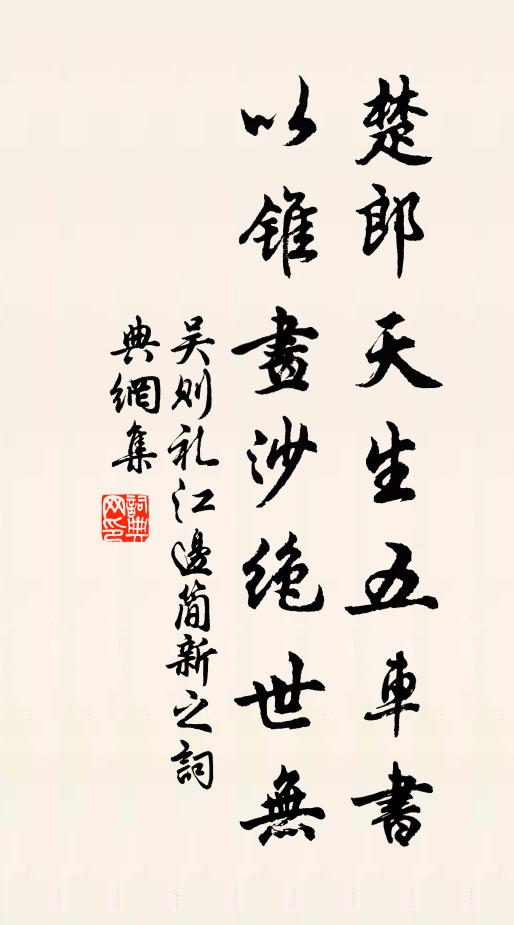 楚郎天生五車書
以錐畫沙絶世無
吴则礼江邊简新之詞
典網集
詞典网印